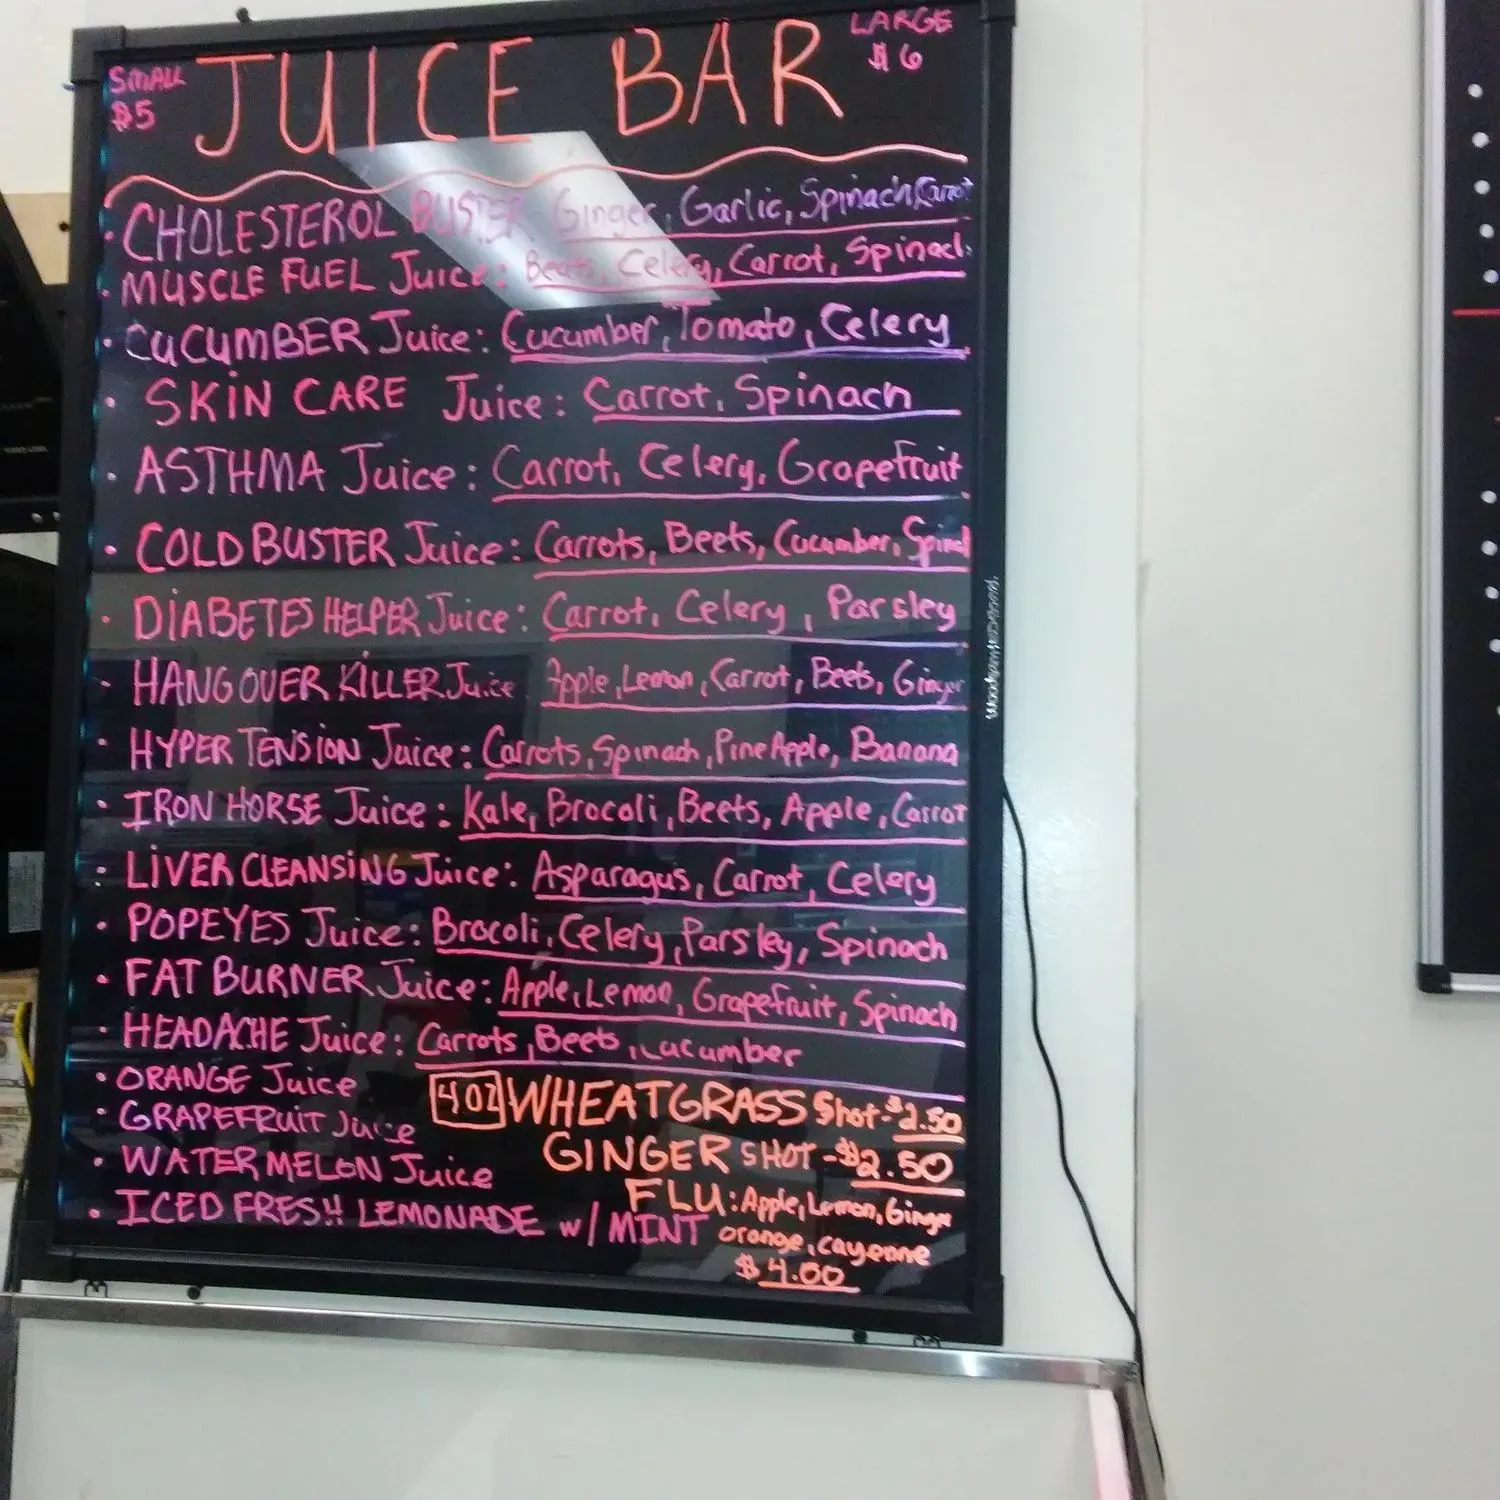 SMALL $5
JUICE BAR
LARGE $6
• CHOLESTEROL BUSTER Ginger, Garlic, Spinach, Carrot
• MUSCLE FUEL Juice: Beets, Celery, Carrot, Spinach
• CUCUMBER Juice: Cucumber, Tomato, Celery
• SKIN CARE Juice: Carrot, Spinach
• ASTHMA Juice: Carrot, Celery, Grapefruit
• COLD BUSTER Juice: Carrots, Beets, Cucumber, Spinach
• DIABETES HELPER Juice: Carrot, Celery, Parsley
• HANGOVER KILLER Juice Apple, Lemon, Carrot, Beets, Ginger
• HYPERTENSION Juice: Carrots, Spinach, PineApple, Banana
• IRON HORSE Juice: Kale, Brocoli, Beets, Apple, Carrot
• LIVER CLEANSING Juice: Asparagus, Carrot, Celery
• POPEYES Juice: Brocoli, Celery, Parsley, Spinach
• FAT BURNER Juice: Apple, Lemon, Grapefruit, Spinach
• HEADACHE Juice: Carrots, Beets, Cucumber
• ORANGE Juice
• GRAPEFRUIT Juice
• WATERMELON Juice
• ICED FRESH LEMONADE w/ MINT
4 OZ WHEATGRASS Shot-$2.50
GINGER SHOT -$2.50
FLU: Apple, Lemon, Ginger
orange, cayenne
$4.00